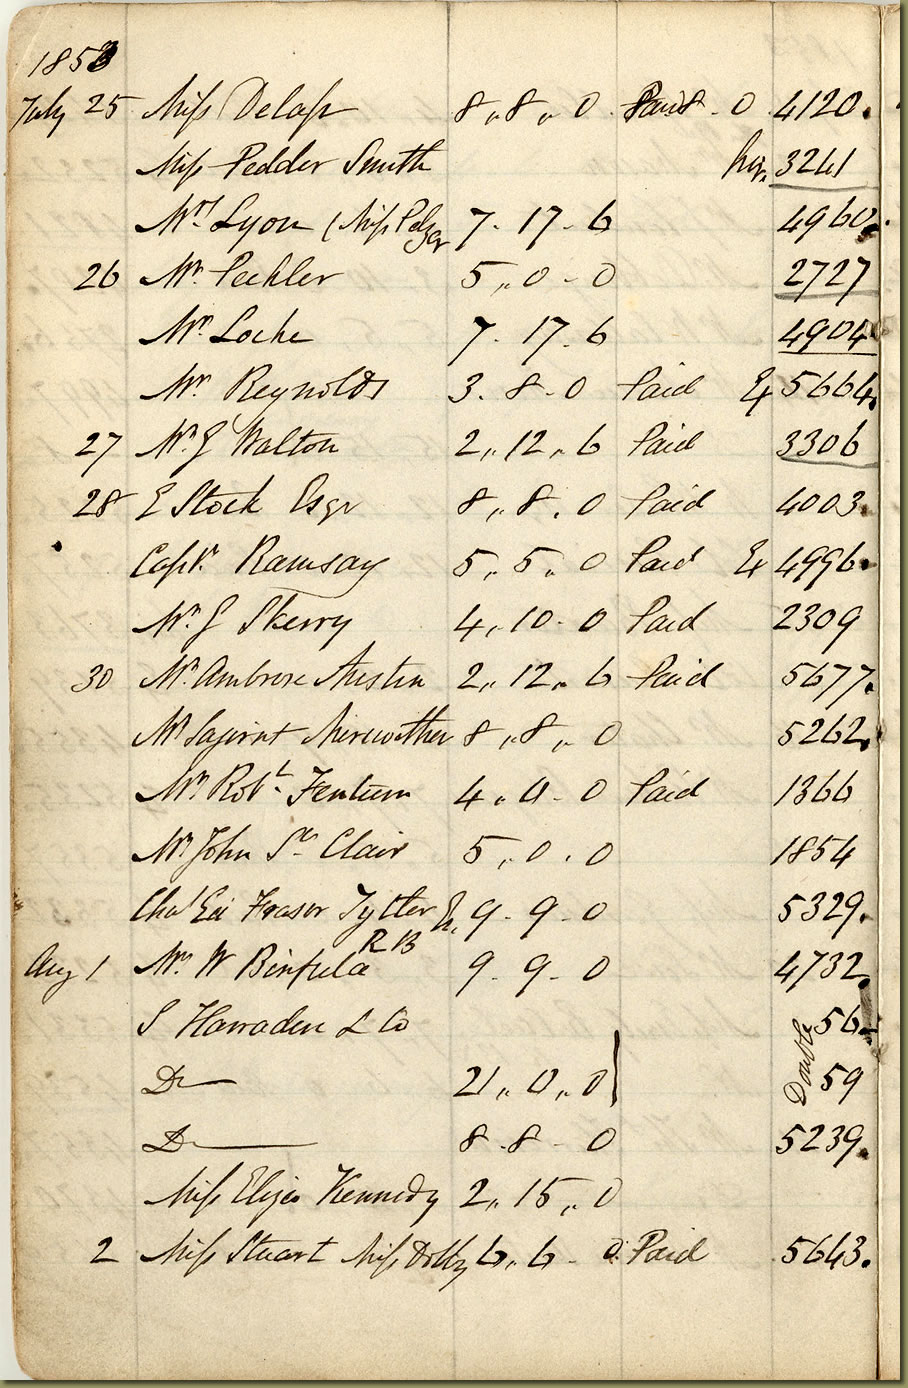 1853
July 25 Miss Delap 8,,8,,0 Paid 0 4120.
Miss Pedder Smith 3241
Mrs Lyon (Miss Pelzer 7. 17. 6 4960.
26 Mr. Peckler 5,,0-0 2727
Mr. Locke 7. 17. 6 4904
Mr. Reynolds 3. 8. 0 Paid Ex 5664.
27 Mr. J Walton 2,,12,,6 Paid 3306
28 E Stock Esqr 8,,8.0 Paid 4003.
Captn. Ramsay 5,,5,,0 Paid Ex 4996.
Mr. J Skerry 4,,10-0 Paid 2309
30 Mr. Ambrose Austin 2,,12,,6 Paid 5677.
Mr Serjint Merewether 8,,8,,0 5262.
Mr. Robt. Fentum 4,,0-0 Paid 1366
Mr John St. Clair 5,,0.0 1854
Chas Ed Fraser Tytler 9-9-0 5329.
R B
Aug 1 Mr. W Binfield 9-9-0 4732.
S Harraden & Co 56
Do 21,,0,,0 Double 59
Do 8-8-0 5239.
Miss Eliza Kennedy 2,,15,,0
2 Miss Stuart Miss Dolby 6,,6-0 Paid 5643.